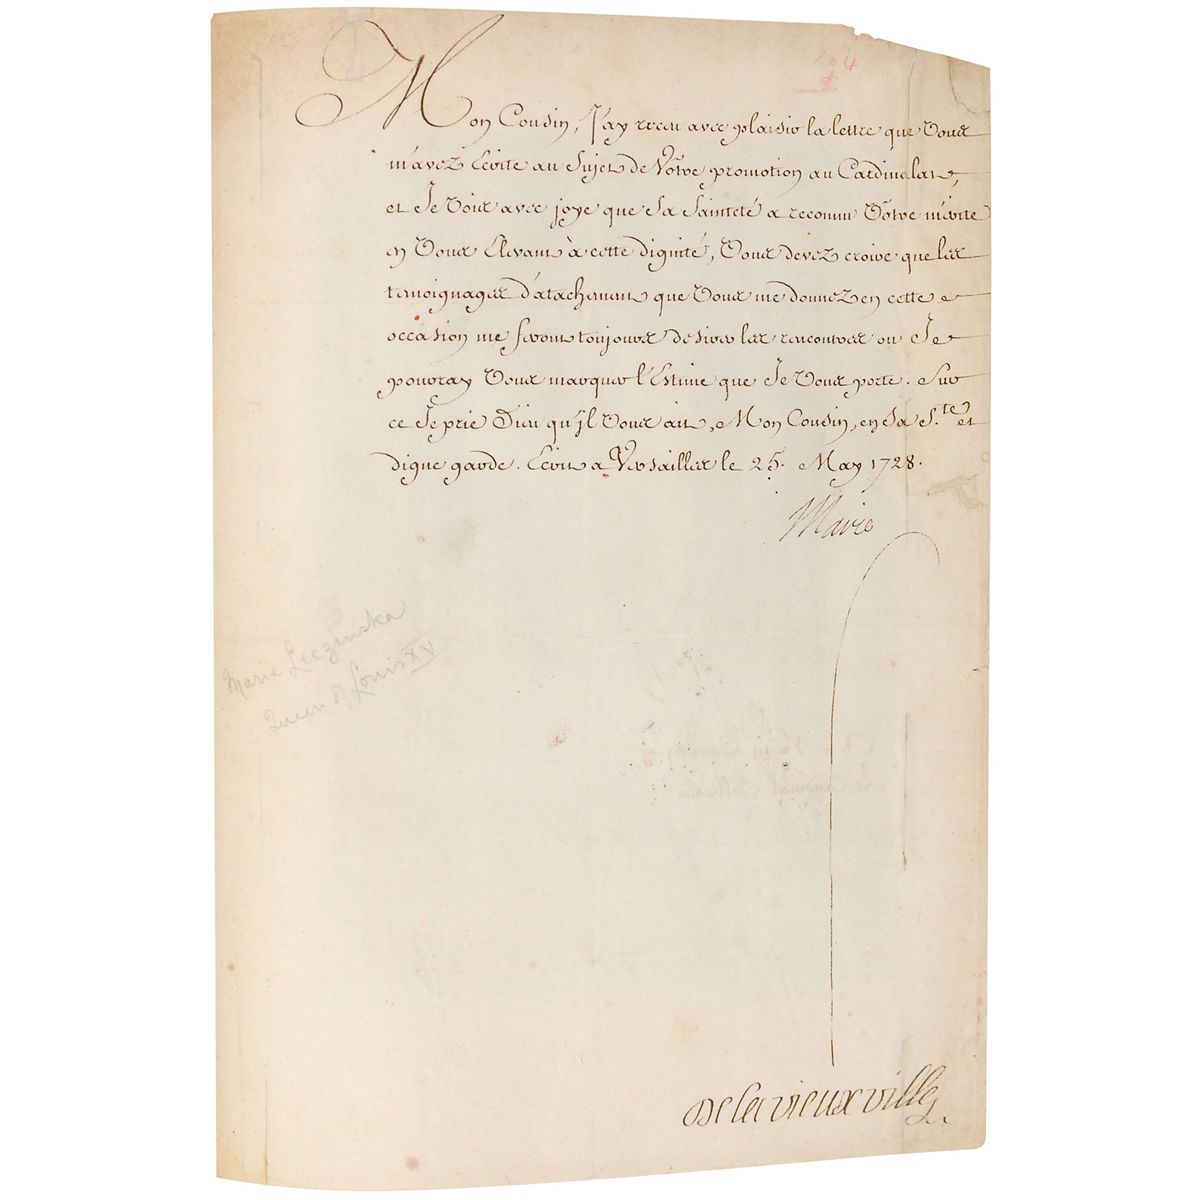 204
#
Mon Cousin, J'ay receu avec plaisir la lettre que Vous
m'avez Ecrite au Sujet de Vôtre promotion au Cardinalat,
et Je Vois avec joye que Sa Sainteté a reconnu Vôtre mérite
en Vous Elevant à cette dignité, Vous devez croire que les
temoignages d'atachement que Vous me donnez en cette
occasion me feront toujours desirer les rencontres ou Je
pouray Vous marquer l'Estime que Je Vous porte. Sur
ce Je prie Dieu qu'jl Vous ait, Mon Cousin, en Sa S.te et
digne garde. Ecrit a Versailles le 25. May 1728.
Marie
Marie Leczinska
Queen of Louis XV
De la vieuxville